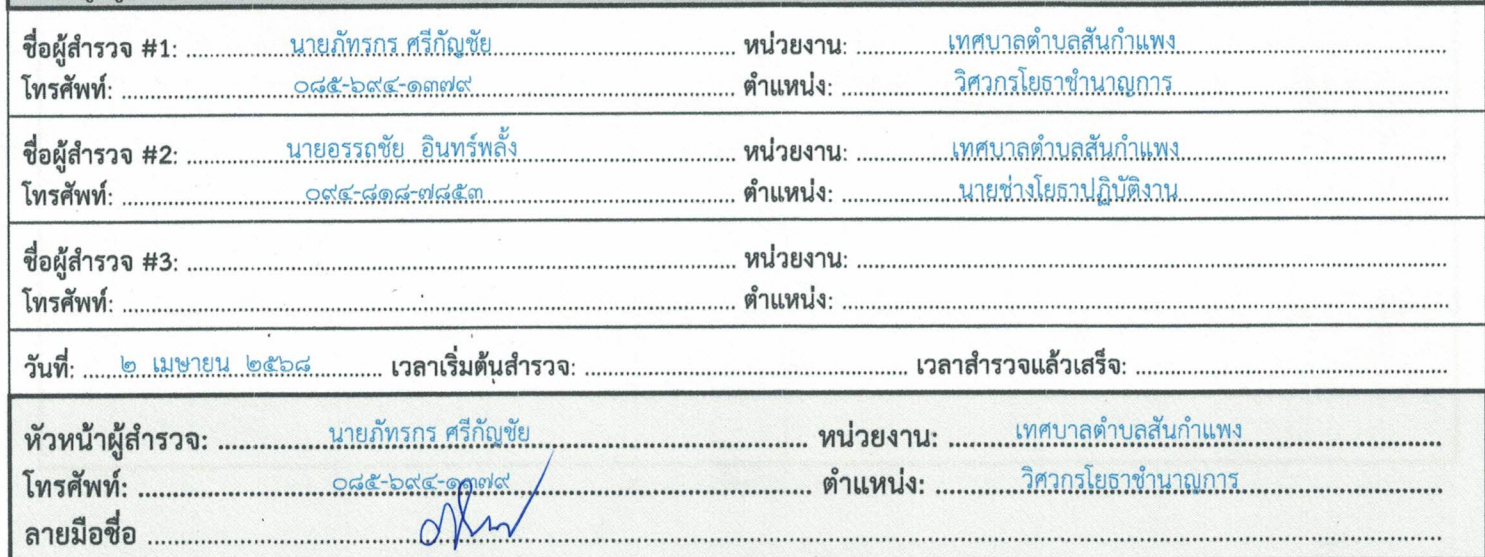 ชื่อผู้สำรวจ #1: นายภัทรกร ศรีกัญชัย หน่วยงาน: เทศบาลตำบลสันกำแพง
โทรศัพท์: ๐๘๕-๖๙๔-๑๓๗๙ ตำแหน่ง: วิศวกรโยธาชำนาญการ
ชื่อผู้สำรวจ #2: นายอรรถชัย อินทร์พลั้ง หน่วยงาน: เทศบาลตำบลสันกำแพง
โทรศัพท์: ๐๙๔-๘๑๘-๗๘๕๓ ตำแหน่ง: นายช่างโยธาปฏิบัติงาน
ชื่อผู้สำรวจ #3: หน่วยงาน:
โทรศัพท์: ตำแหน่ง:
วันที่: ๒ เมษายน ๒๕๖๘ เวลาเริ่มต้นสำรวจ: เวลาสำรวจแล้วเสร็จ:
หัวหน้าผู้สำรวจ: นายภัทรกร ศรีกัญชัย หน่วยงาน: เทศบาลตำบลสันกำแพง
โทรศัพท์: ๐๘๕-๖๙๔-๑๓๗๙ ตำแหน่ง: วิศวกรโยธาชำนาญการ
ลายมือชื่อ